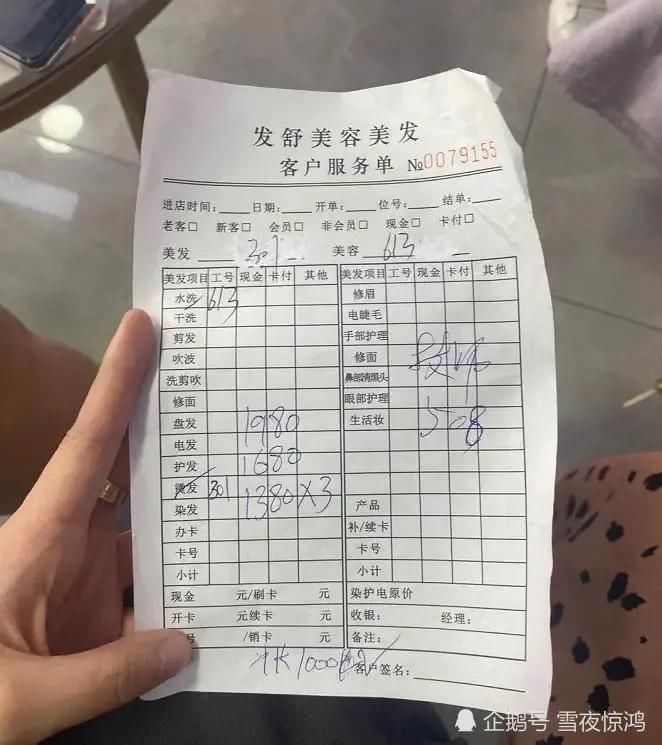 发舒美容美发
客户服务单 №0079155
进店时间：____日期：____开单：____位号：____结单：____
老客□ 新客□ 会员□ 非会员□ 现金□ 卡付□
美发 301 美容 613
美发项目 工号 现金 卡付 其他 美发项目 工号 现金 卡付 其他
水洗 613 修眉
干洗 电睫毛
剪发 手部护理
吹波 修面
洗剪吹 鼻部清黑头
修面 眼部护理
盘发 1980 生活妆 508
电发
护发 1680
烫发 301
染发 1380×3 产品
办卡 补/续卡
卡号 卡号
小计 小计
现金 元/刷卡 元 染护电原价
开卡 元续卡 元 收银： 经理：
号 /销卡 元 备注：
1000
客户签名：
企鹅号 雪夜惊鸿